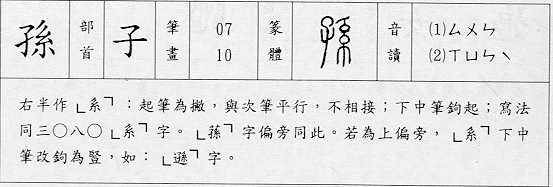 孫 部首 子 筆畫 07 10 篆體 孫 音讀 (1)ㄙㄨㄣ (2)ㄒㄩㄣˋ
右半作「系」：起筆為撇，與次筆平行，不相接；下中筆鉤起；寫法
同三○八○「系」字。「蓀」字偏旁同此。若為上偏旁，「系」下中
筆改鉤為豎，如：「遜」字。